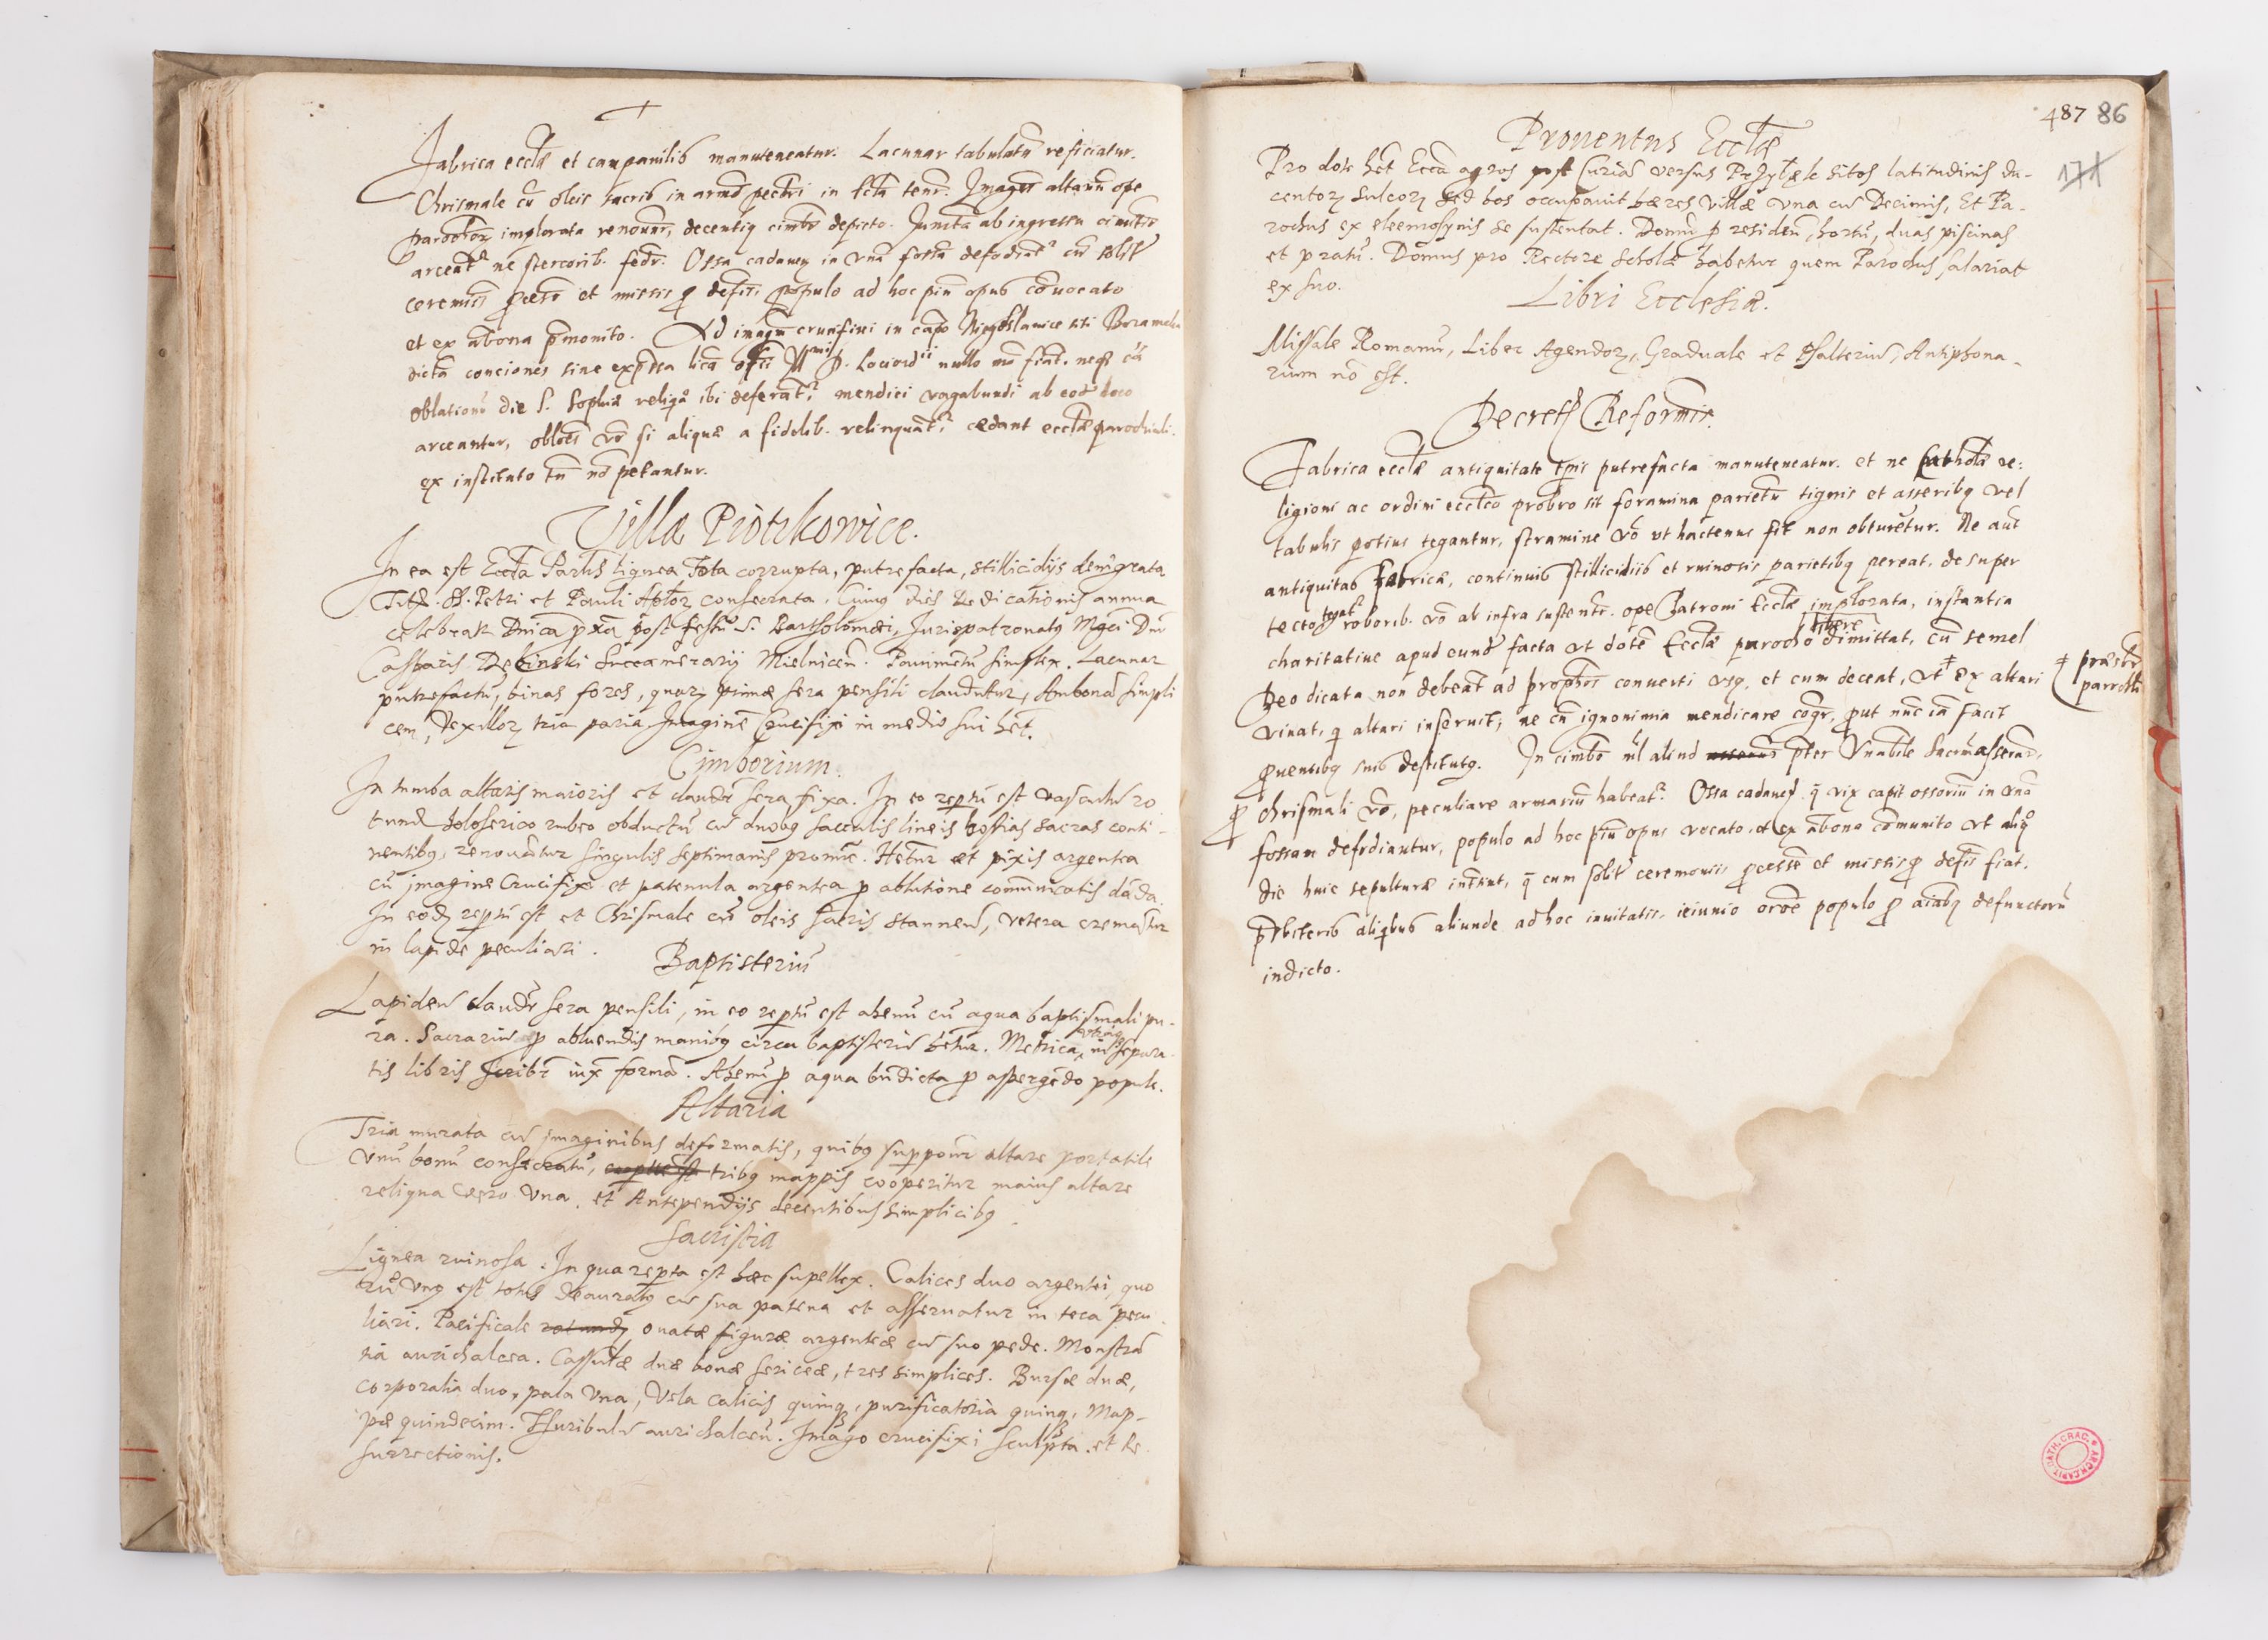 Fabrica ecclæ et campanilis manuteneatur. Lacunar tabulatū reficiatur.
Chrismale cū oleis sacris in ope
implorata decentiq cimbō depicto. ab ingressu cimiterii
arceāt ne stercorib. fędr. Ossa cadauerum in vnā fossā defodiāt cū solit
ceremoniis et missis p populo ad hoc piū opus cōuocato
et ex abona pmonito. Ad imagm crucifixi in capo siti
dicta conciones sine expressa nullo mō fiāt. neq
oblationes die S. Sophiæ ibi deferāt, mendici vagabundi ab eod loco
arceantur, vō si aliquæ a fidelib. relinquāt, cedant ecclæ parochiali.
ex instituto tn nō petantur.
Villa Piotrkowice.
In ea est Eccta Partis lignea Tota corrupta, putrefacta, stillicidijs denigrata
Titl. SS. Petri et Pauli Aptor consecrata. Cuius dies Dedicationis annua
celebrat Dnica pxa post festū S. Bartholomæi, Jurispatronatq Mgci Dni
Casparis Dębinski Succamerarij Mielnicen. Pauimētū simplex. Lacunar
putrefactū, binas fores, quar primæ sera pensili claudūtur, Ambonā simpli
cem, Vexillor tria paria Imaginē Crucifixi in medio sui het.
Cimborium.
In tumba altaris maioris et claudr sera fixa. In eo reptū est vasculū ro
tund holoserico rubeo obductū cū duobq sacculis lineis hostias sacras conti-
nentibq, renouātur singulis septimanis Hetur et pixis argentea
cū imagine Crucifixi et patenula argentea p ablutione comunicatis dāda.
In eod reptū est et Chrismale cū oleis sacris stanneū, vetera cremātur
in lapide peculiari.
Baptisteriū
Lapideū claudr sera pensili, in eo reptū est ahenū cū aqua baptismali pu-
ra. Sacrariū p abluendis manibq circa baptisteriū hetur. Metrica utraq in separa-
tis libris scribr iux formā. Ahenū p aqua bndicta p aspergēdo populo.
Altaria
Tria murata cū imaginibus deformatis, quibq supponr altare portatile
vnū bonū consecratū, tribq mappis cooperitur maius altare
reliqua vero vna. et Antependijs decentibus simplicibq.
Sacristia
Lignea ruinosa. In qua repta est hæc supellex. Calices duo argentei, quo
rū vnq est totus deauratq cū sua patena et asseruatur in teca pecu
liari. Pacificale rotundæ ouatæ figuræ argenteæ cū suo pede. Monstrā
tia aurichalcea. Cassulæ duæ bonæ sericeæ, tres simplices. Bursæ duæ,
corporalia duo, pala vna, Vela calicis quinq, purificatoria quinq, Map-
pæ quindecim. Thuribulū aurichalceū. Imago crucifixi sculpta. et Re
surrectionis.
487 86
171
Prouentus Ecclæ
Pro dote het Eccta agros post curiā versus sitos latitudinis du-
centor sulcor sed hos occupauit hæres villæ vna cū Decimis, Et Pa-
rochus ex eleemosynis se sustentat. Domū p residen, hortū, duas piscinas
et pratū. Domus pro Rectore scholæ habetur quem Parochus salariat
ex suo.
Libri Ecclesiæ.
Missale Romanū, Liber Agendor, Graduale et Psalteriū, Antiphona-
rium nō est.
Decret Reformis.
Fabrica ecclæ antiquitate tpis putrefacta manuteneatur. et ne Catholæ re:
ligioni ac ordini ecclco probro sit foramina parietū tignis et asseribq vel
tabulis potius tegantur, stramine vō ut hactenus fit non obturētur. Ne aūt
antiquitas fabricæ, continuis stillicidiis et ruinosis parietibq pereat, desuper
tecto tegat roborib. vō ab infra sustentr. ope Patroni Ecclæ implorata, instantia
charitatiue apud eund facta ut dotē Ecclæ parocho libere dimittat, cū semel
Deo dicata non debeāt ad prophos conuerti vsq, et cum deceat, vt ex altari
præsbr
parrochi
viuat, q altari inseruit, ne cū ignominia mendicare cogr, put nūc iā facit
prouentibq suis destitutq. In cimbō nil aliud pter Vnabile Sacrm asseruar,
p chrismali vō, peculiare armariū habeat. Ossa cadaueꝝ q vix capit ossoriū in vnā
fossam defodiantur, populo ad hoc piū opus vocato, et ex abona comunito vt aliq
die huic sepulturæ intsint, q cum solit ceremoniis pcessē et missis p defis fiat.
pbiteris aliqbus aliunde ad hoc inuitatis, ieiunio populo p aiabq defunctorū
indicto.